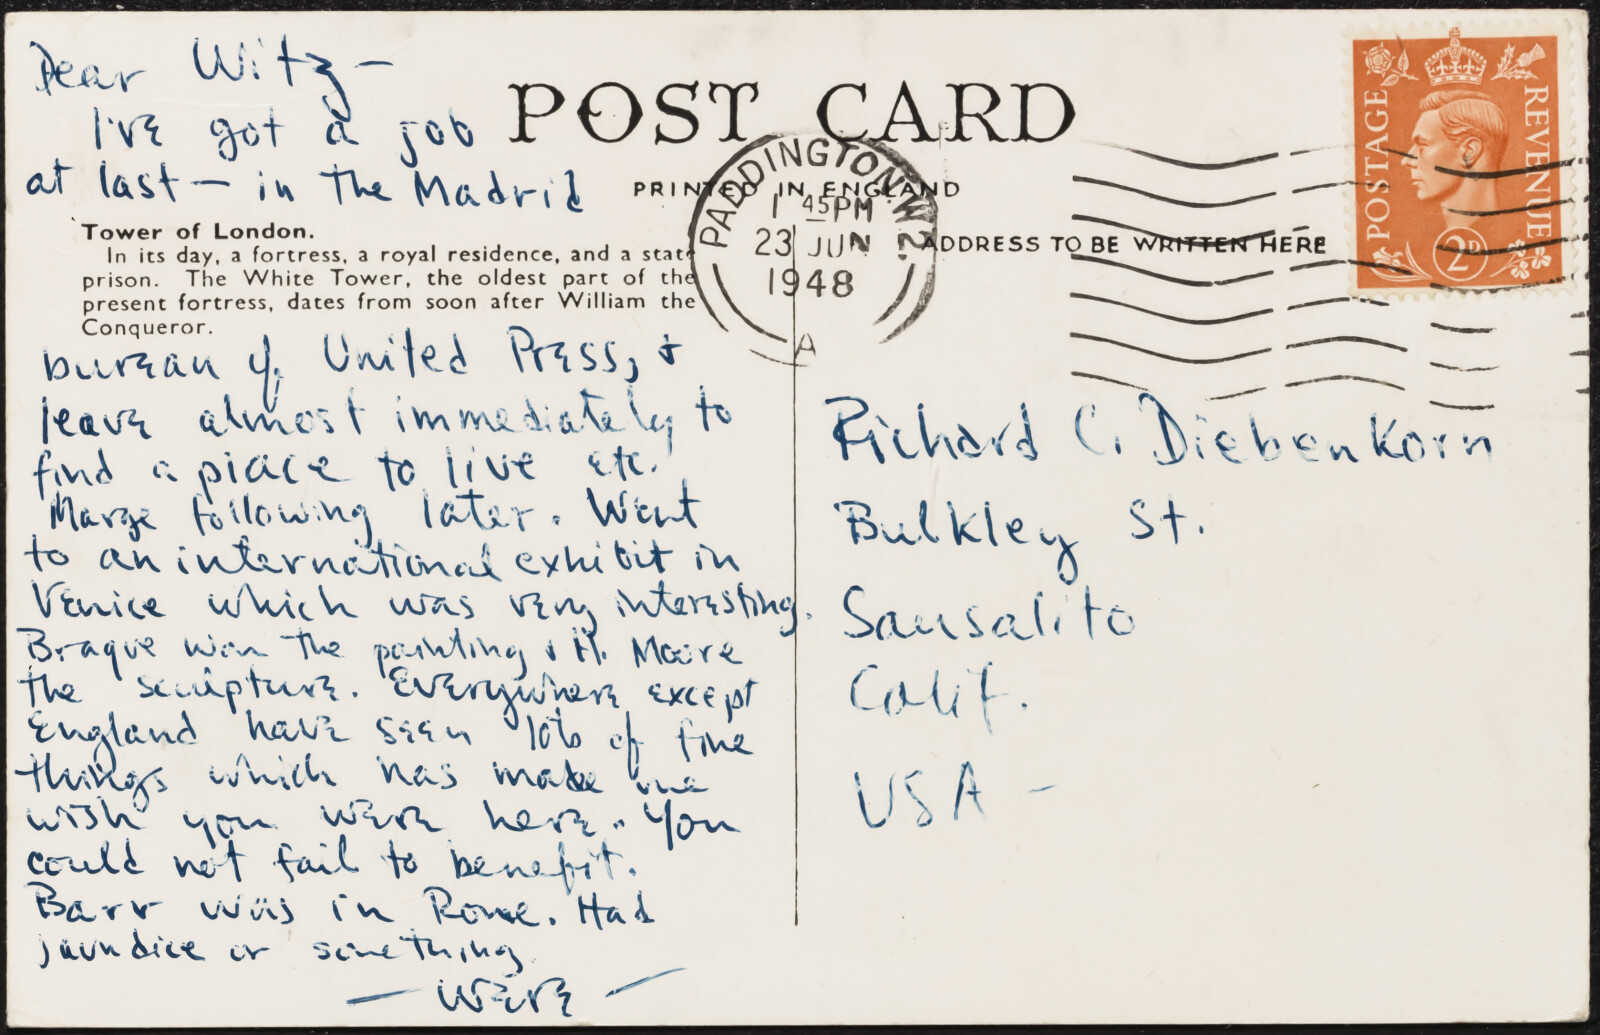 Dear Witz —
I've got a job
at last — in the Madrid
POST CARD
PRINTED IN ENGLAND
Tower of London.
In its day, a fortress, a royal residence, and a state
prison. The White Tower, the oldest part of the
present fortress, dates from soon after William the
Conqueror.
bureau of United Press, &
leave almost immediately to
find a place to live etc.
Marge following later. Went
to an international exhibit in
Venice which was very interesting.
Braque won the painting & H. Moore
the sculpture. Everywhere except
England have seen lots of fine
things which has made me
wish you were here. You
could not fail to benefit.
Barr was in Rome. Had
jaundice or something
PADDINGTON. W2.
1 45 PM
23 JUN
1948
A
POSTAGE
REVENUE
2D
ADDRESS TO BE WRITTEN HERE
Richard C. Diebenkorn
Bulkley St.
Sausalito
Calif.
USA —